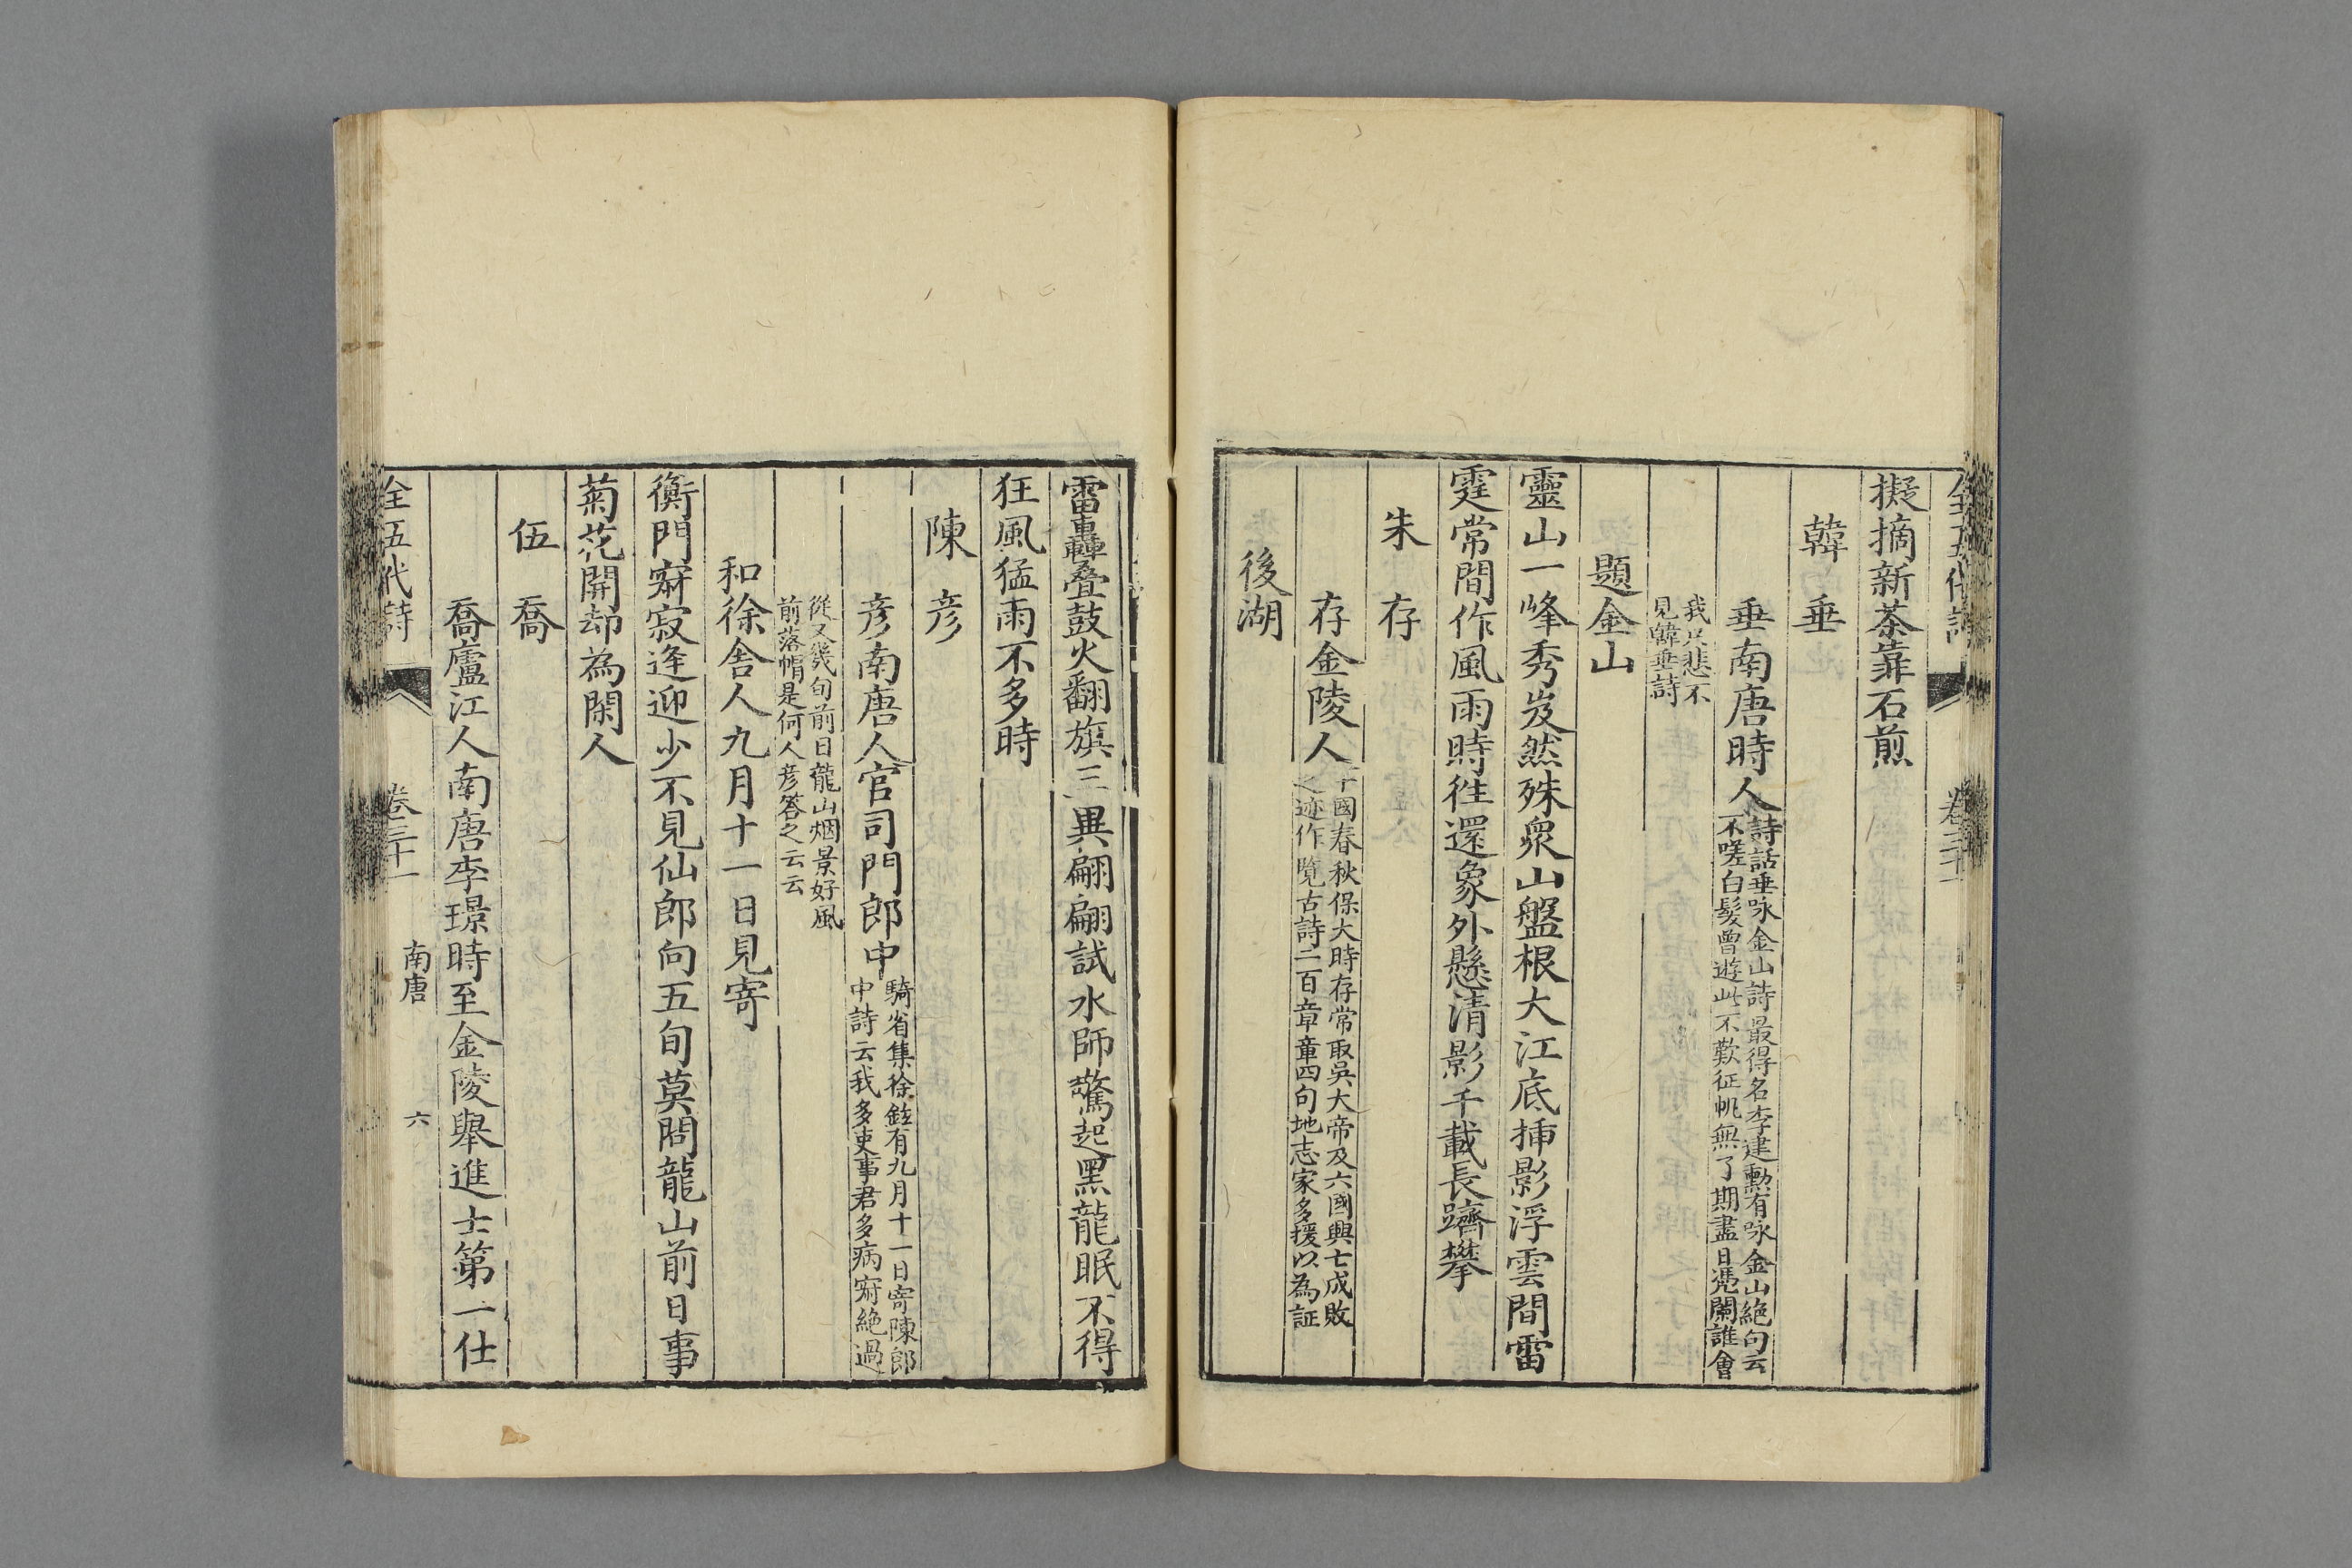 擬摘新茶靠石煎
韓垂
垂南唐時人詩話垂咏金山詩最得名李建勳有咏金山絶句云
不嗟白髮曾遊此不歎征帆無了期盡日凭闌誰會
我只悲不
見韓垂詩
題金山
靈山一峰秀岌然殊衆山盤根大江底挿影浮雲間雷
霆常間作風雨時往還象外懸清影千載長躋攀
朱存
存金陵人十國春秋保大時存常取吳大帝及六國興亡成敗
之迹作覽古詩二百章章四句地志家多援以為証
後湖
雷轟疊鼓火翻旗三異翩翩試水師驚起黑龍眠不得
狂風猛雨不多時
陳彦
彦南唐人官司門郎中騎省集徐鉉有九月十一日寄陳郎
中詩云我多吏事君多病寂絶過
從又幾旬前日龍山烟景好風
前落帽是何人彦答之云云
和徐舎人九月十一日見寄
衡門寂寂逢迎少不見仙郎向五旬莫問龍山前日事
菊花開却為閑人
伍喬
喬廬江人南唐李璟時至金陵舉進士第一仕
全五代詩 卷三十一 南唐 六